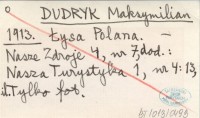 DUDRYK Maksymilian
1913. Łysa Polana. -
Nasze Zdroje 4, nr 7, dod.:
Nasza Turystyka 1, nr 4: 13,
Tylko fot.